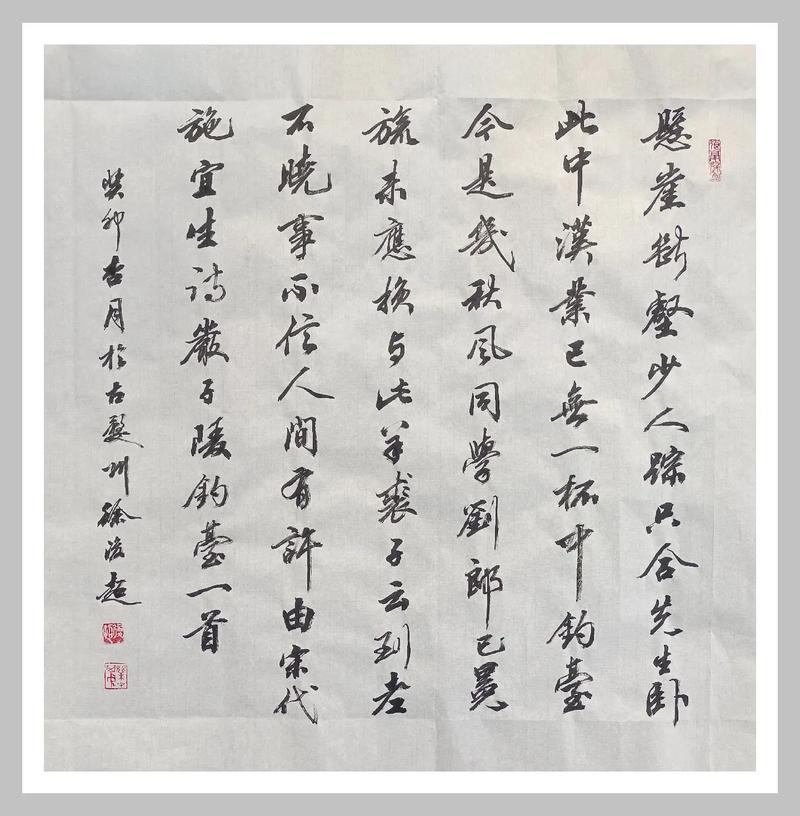 懸崖斷壑少人踪只合先生卧
此中漢業已無一杯钓臺
今是幾秋風同學劉郎已冕
旒未應换与此羊裘子云到老
不曉事不信人間有許由宋代
施宜生詩嚴子陵钓臺一首
癸卯杏月於古州徐超